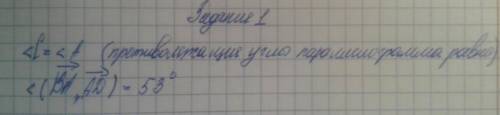 Задание 1
<C = <A (противолежащие углы параллелограмма равны)
<(BA, AD) = 53°